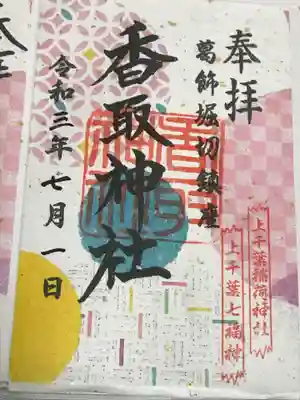 奉拝
葛飾堀切鎮座
上千葉稲荷神社
上千葉七福神
香取神社
令和三年七月一日